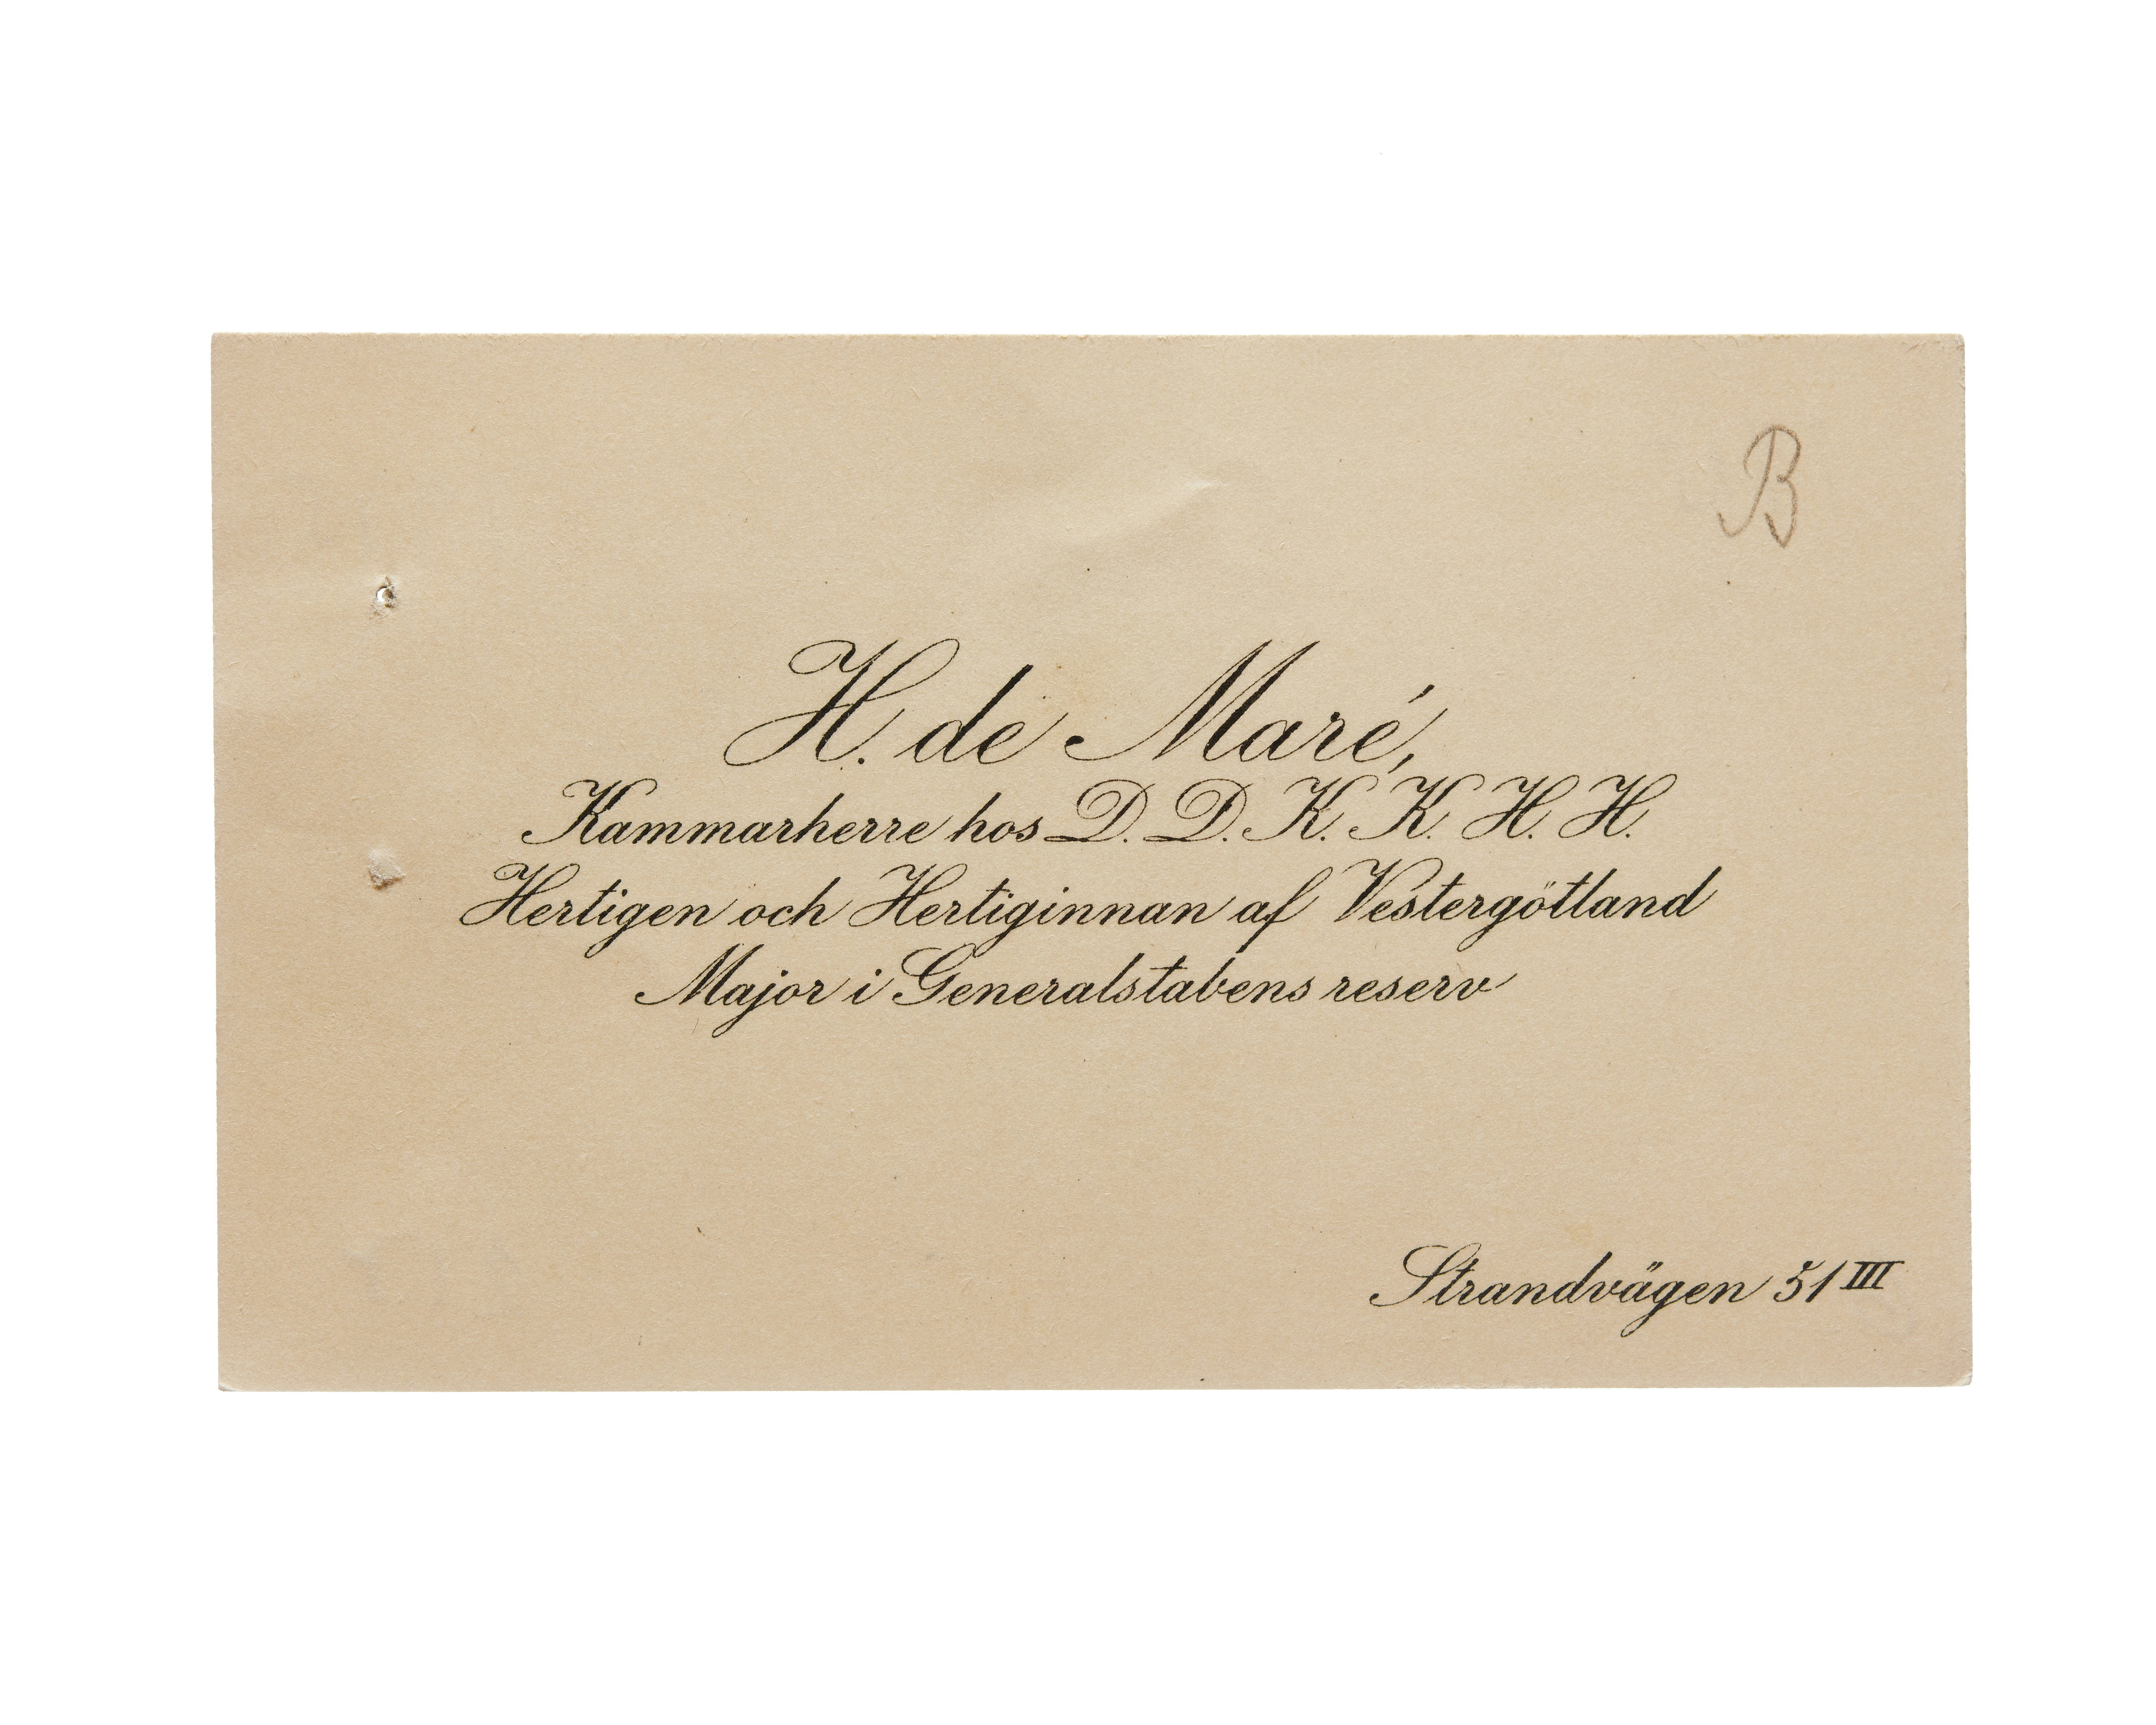 B
H. de Maré,
Kammarherre hos D. D. K. K. H. H.
Hertigen och Hertiginnan af Vestergötland
Major i Generalstabens reserv
Strandvägen 51 III